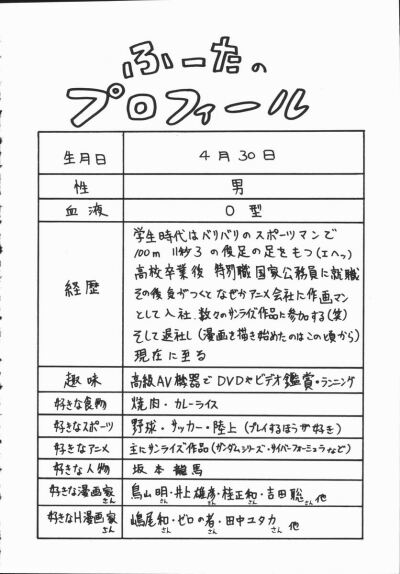 ふーたの
プロフィール
生月日 4月30日
性 男
血液 O型
経歴 学生時代はバリバリのスポーツマンで
100m 11秒3の俊足の足をもつ(エヘッ)
高校卒業後 特別職国家公務員に就職
その後気がつくとなぜかアニメ会社に作画マン
として入社、数々のサンライズ作品に参加する(笑)
そして退社し(漫画を描き始めたのはこの頃から)
現在に至る
趣味 高級AV機器でDVDやビデオ鑑賞・ランニング
好きな食物 焼肉・カレーライス
好きなスポーツ 野球・サッカー・陸上(プレイするほうが好き)
好きなアニメ 主にサンライズ作品(ガンダムシリーズ・サイバーフォーミュラなど)
好きな人物 坂本龍馬
好きな漫画家さん 鳥山明さん・井上雄彦さん・桂正和さん・吉田聡さん他
好きなH漫画家さん 嶋尾和さん・ゼロの者さん・田中ユタカさん他